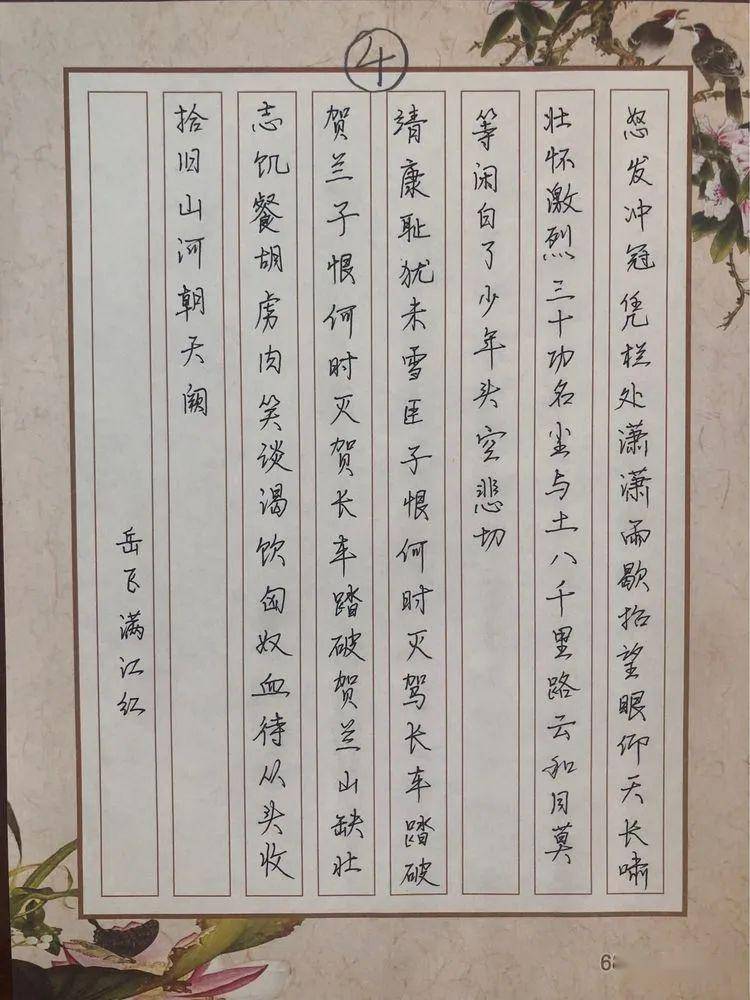 4
怒发冲冠凭栏处潇潇雨歇抬望眼仰天长啸
壮怀激烈三十功名尘与土八千里路云和月莫
等闲白了少年头空悲切
靖康耻犹未雪臣子恨何时灭驾长车踏破
贺兰子恨何时灭贺长车踏破贺兰山缺壮
志饥餐胡虏肉笑谈渴饮匈奴血待从头收
拾旧山河朝天阙
岳飞满江红